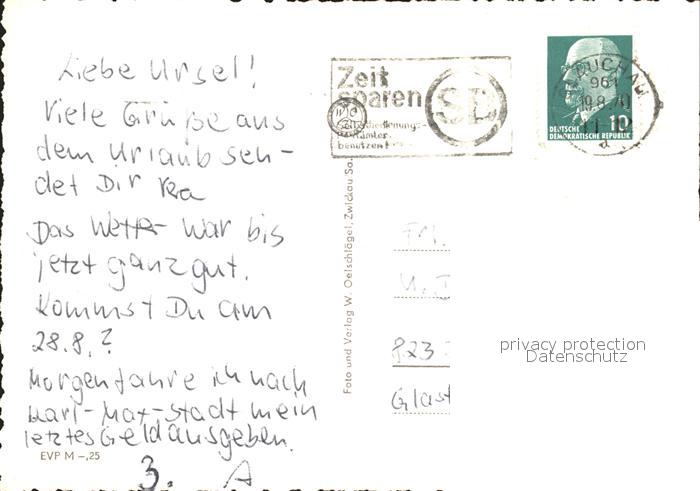 Liebe Ursel!
Viele Grüße aus
dem Urlaub sen-
det Dir
Das Wetter war bis
jetzt ganz gut.
Kommst Du am
28.8.?
Morgen fahre ich nach
Karl-Max-Stadt mein
letztes Geld ausgeben.
EVP M -,25
3. A
Zeit
sparen
SB
Selbstbedienungs-
postämter
benutzen!
961
19.8.70
DEUTSCHE
DEMOKRATISCHE REPUBLIK
10
Foto und Verlag W. Oelschlägel, Zwickau Sa.
Frl.
823
Glast
privacy protection
Datenschutz